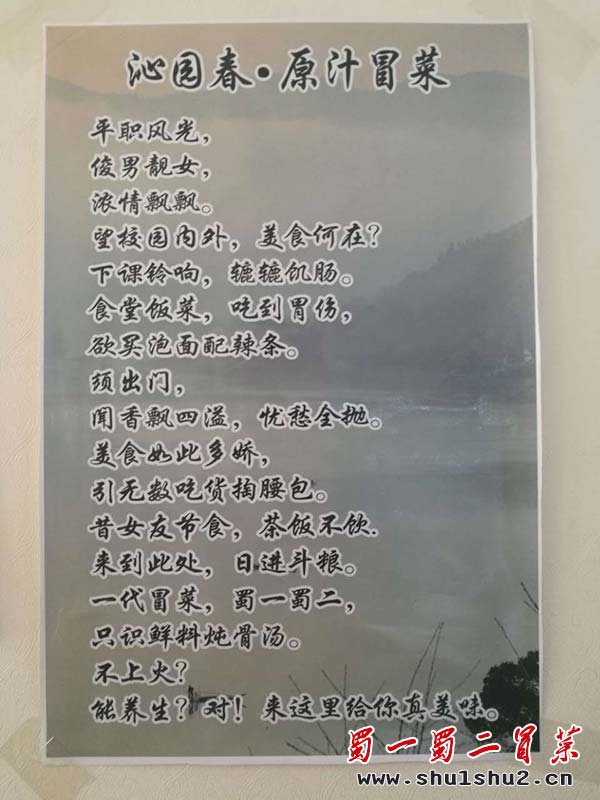 沁园春•原汁冒菜
平职风光，
俊男靓女，
浓情飘飘。
望校园内外，美食何在？
下课铃响，辘辘饥肠。
食堂饭菜，吃到胃伤，
欲买泡面配辣条。
须出门，
闻香飘四溢，忧愁全抛。
美食如此多娇，
引无数吃货掏腰包。
昔女友节食，茶饭不饮.
来到此处，日进斗粮。
一代冒菜，蜀一蜀二，
只识鲜料炖骨汤。
不上火？
能养生？对！来这里给你真美味。
蜀一蜀二冒菜
www.shu1shu2.cn